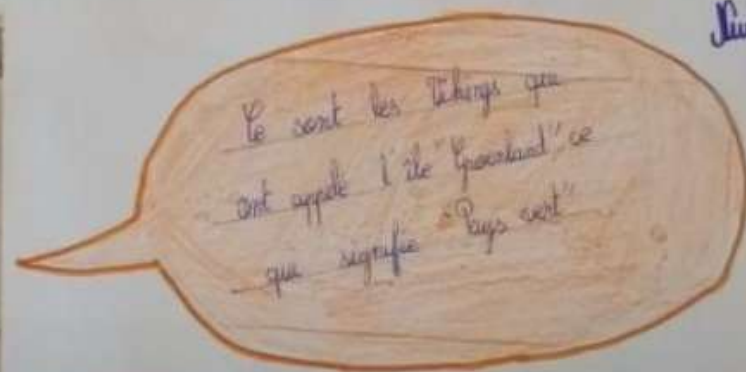 Ce sont les Vikings qui
ont appelé l'île "Groenland", ce
qui signifie "Pays vert"